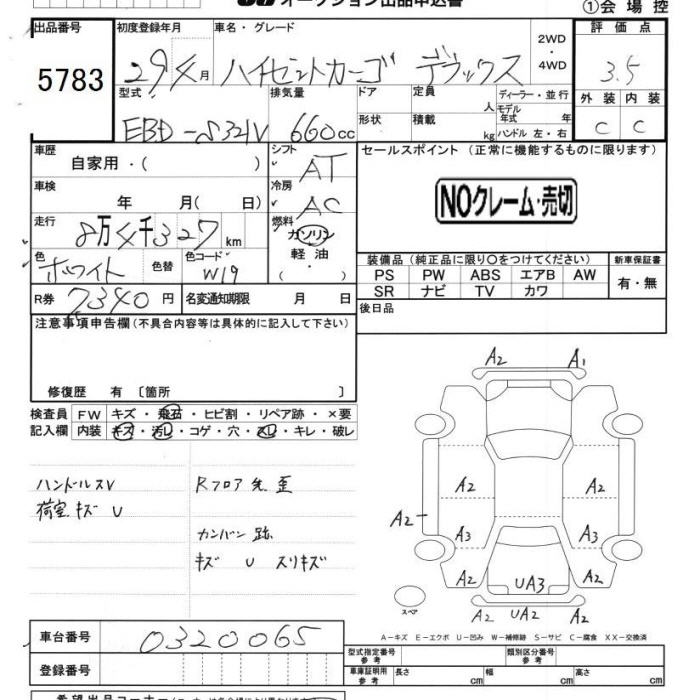 オークション出品申込書 ①会場控
出品番号 初度登録年月 車名・グレード 2WD・4WD 評価点
5783 29年4月 ハイゼットカーゴ デラックス 3.5
型式 排気量 ドア 定員 人 ディーラー・並行 外装 内装
EBD-S321V 660cc 形状 積載 kg モデル年式 年 ハンドル 左・右 C C
車歴 自家用・( ) シフト AT セールスポイント (正常に機能するものに限ります)
車検 年 月( 日) 冷房 AC NOクレーム・売切
走行 8万4千327km 燃料 ガソリン
軽油
・( )
色 ホワイト 色替 色コード W19
装備品(純正品に限り○をつけてください) 新車保証書
PS PW ABS エアB AW 有・無
SR ナビ TV カワ
R券 7340円 名変通知期限 月 日 後日品
注意事項申告欄(不具合内容等は具体的に記入して下さい)
修復歴 有 〔箇所 〕
検査員 FW キズ・飛石・ヒビ割・リペア跡・×要
記入欄 内装 キズ・汚レ・コゲ・穴・スレ・キレ・破レ
ハンドルスレ Rフロア先 歪
荷室キズ U
カンバン跡
キズ U スリキズ
A2 A1
A2 A2
A2
A3 A3
A2 UA3 A2
A2 UA2 A2
スペア
A-キズ E-エクボ U-凹み W-補修跡 S-サビ C-腐食 XX-交換済
車台番号 0320065 型式指定番号 参考 類別区分番号 参考
登録番号 車庫証明用 参考 長さ cm 幅 cm 高さ cm